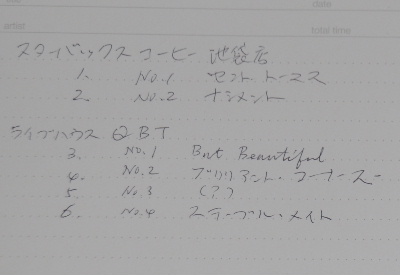 date
artist
total time
スターバックス コーヒー 池袋店
1. No.1 セント トーマス
2. No.2 ナシメント
ライブハウス QBT
3. No.1 But Beautiful
4. No.2 ブリリアント・コーナーズ
5. No.3 (?)
6. No.4 ステーブル・メイト